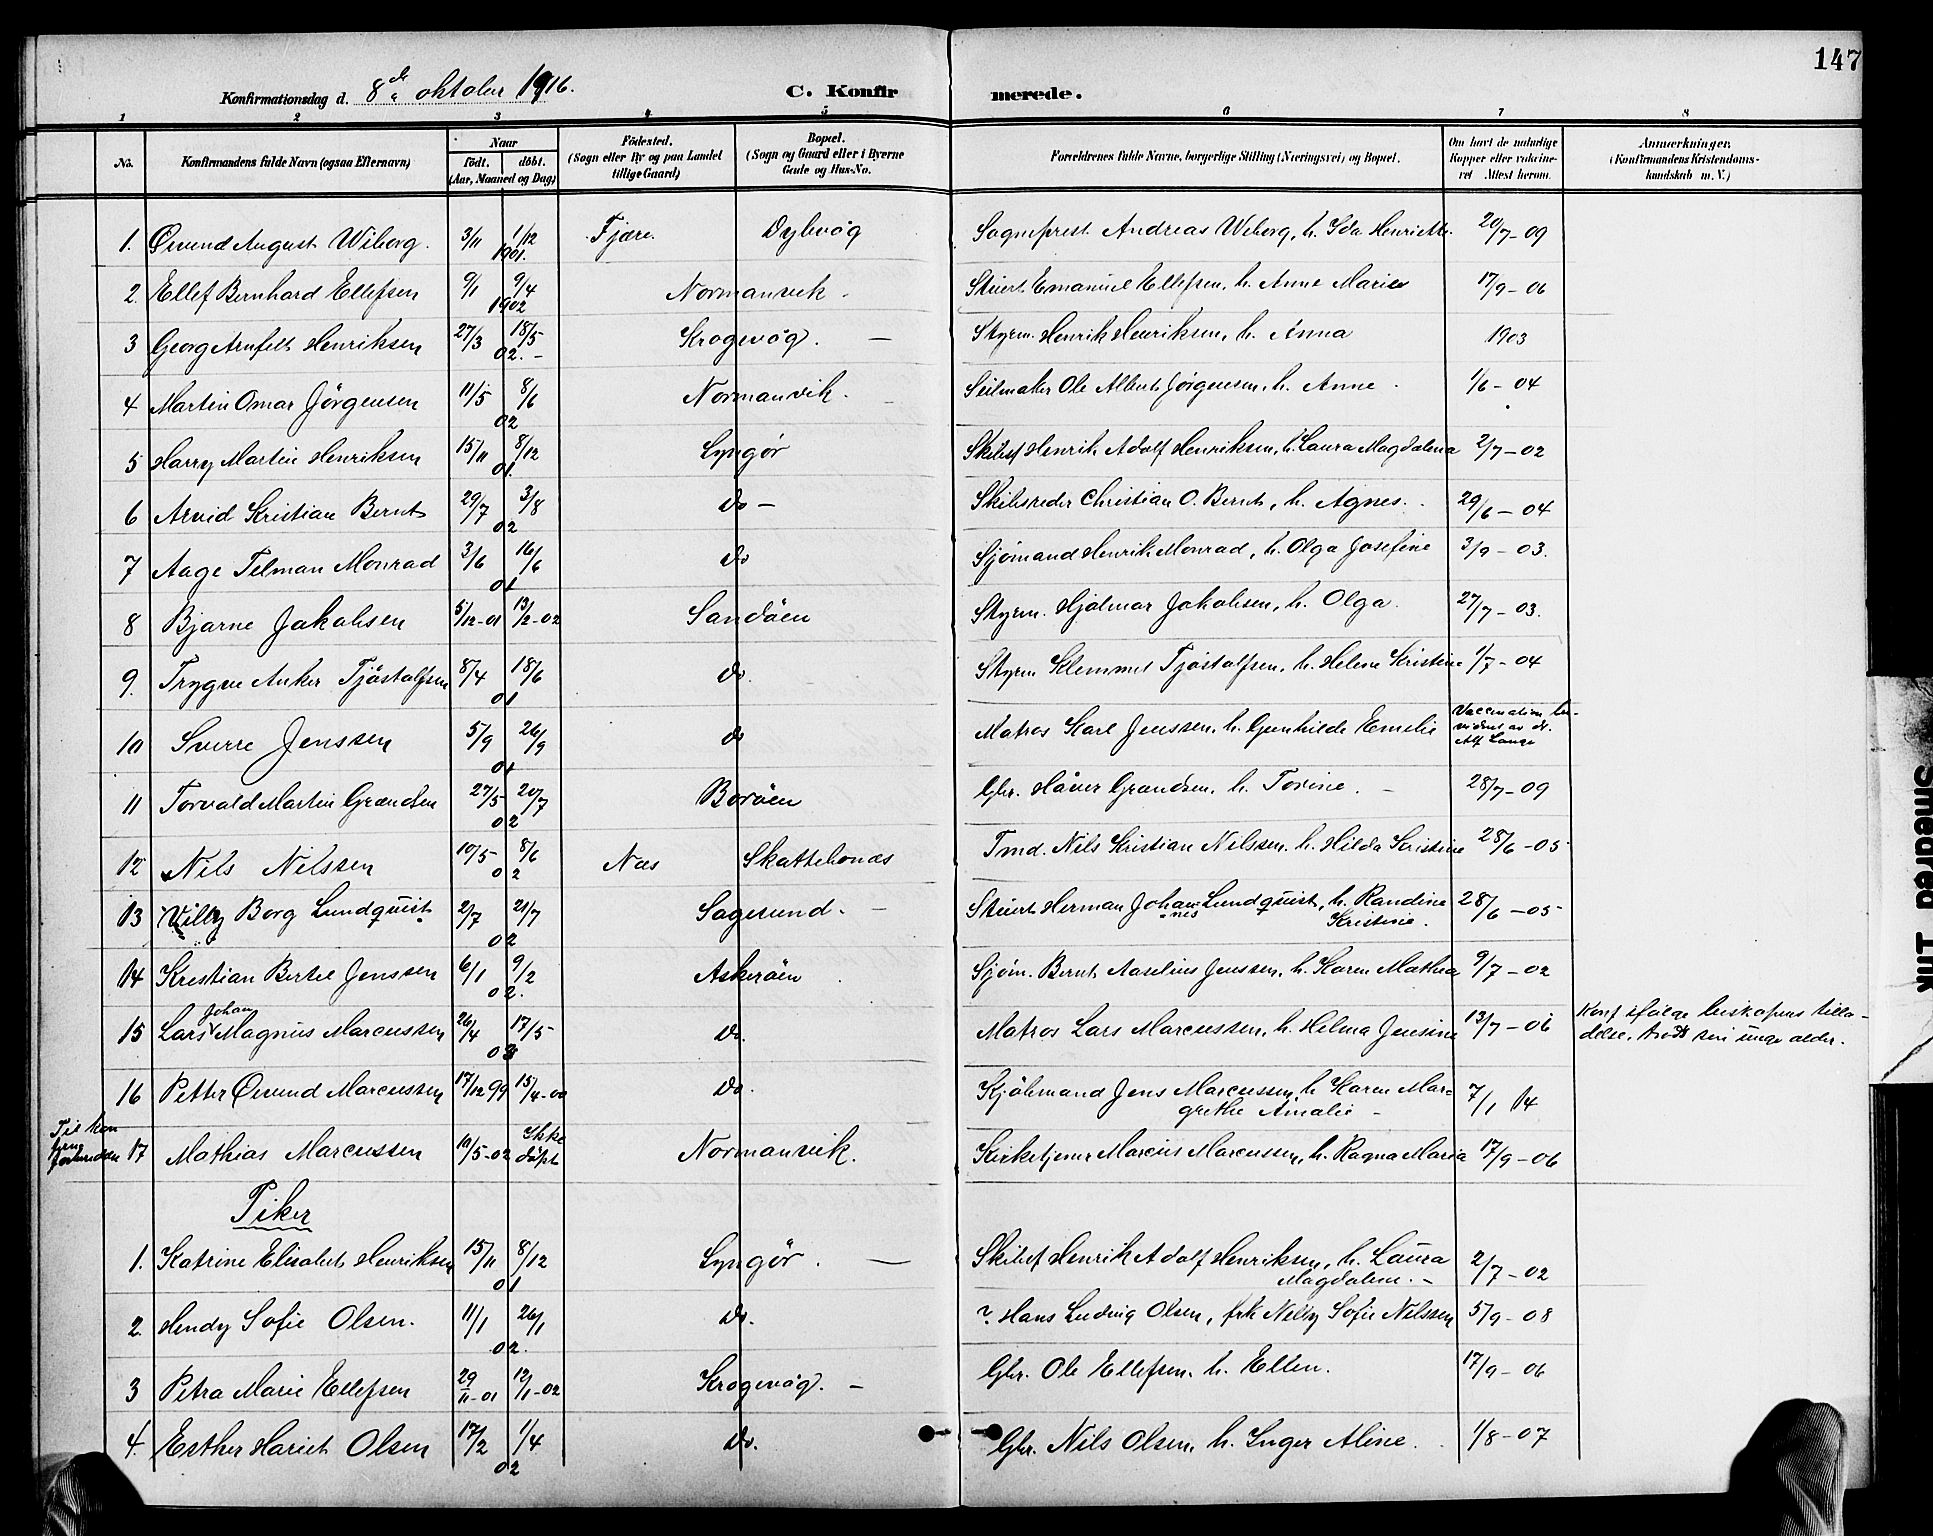 147
Konfirmationsdag d. 8de oktober 1916.
C. Konfirmerede.
1 2 3 4 5 6 7 8
No. Konfirmandens fulde Navn (ogsaa Efternavn) Naar födt. döbt. (Aar, Maaned og Dag) Födested. (Sogn eller By og paa Landet tillige Gaard) Bopæl. (Sogn og Gaard eller i Byerne Gade og Hus-No. Forældrenes fulde Navne, borgerlige Stilling (Næringsvei) og Bopæl. Om havt de naturlige Kopper eller vakcineret Attest herom. Anmærkninger. (Konfirmandens Kristendomskundskab m. V.)
1. Øivind August Wiborg. 3/11 1/12 1901. Fjære. Dybvög Sogneprest Andreas Wiborg, h. Ida Henriette. 20/7-09
2. Ellef Bernhard Ellefsen 9/1 9/4 1902 Normanvik. Stuert Emanuel Ellefsen, h. Anne Marie 17/9-06
3 Georg Arnfelt Henriksen 27/3 18/5 02.- Krogevög. — Styrm. Henrik Henriksen, h. Anna 1903
4 Martin Omar Jörgensen 11/5 8/6 02 Normanvik. Seilmaker Ole Albert Jörgensen, h. Anne. 1/6-04
5 Harry Martin Henriksen 15/11 8/12 01. Lyngör Skibsf Henrik Adolf Henriksen, h. Laura Magdalena 2/7-02
6 Arvid Kristian Bernt 29/7 3/8 02 do — Skibsreder Christian O. Bernt, h. Agnes. 29/6-04
7 Aage Telman Monrad 3/6 16/6 01 do Sjömand Henrik Monrad, h. Olga Josefine 3/9-03.
8 Bjarne Jakobsen 5/12-01 13/2-02 Sandöen Styrm. Hjalmar Jakobsen, h. Olga. 27/7-03.
9. Trygve Anker Tjöstolfsen 8/4 18/6 01 do. Styrm Klemmet Tjöstolfsen, h. Helene Kristine 1/7-04
10 Sverre Jenssen 5/9 26/9 01 do Matros Karl Jenssen, h. Gunhilde Emilie Vaccination bevidnet av dr. Alf Lange
11 Torvald Martin Grandsen 27/5 20/7 02 Boröen Gbr. Håver Grandsen, h. Torine. - 28/7-09
12 Nils Nilssen 10/5 8/6 02 Nes Skattebonæs Tmd. Nils Kristian Nilssen. h. Hilda Kristine 28/6-05
13 Villy Borg Lundquist 2/7 21/7 02 Sagesund. — Stuert Herman Johannes Lundquist, h. Randine Kristine. 28/6-05
14 Kristian Bertel Jenssen 6/1 9/2 02. Askeröen Sjöm. Bernt Aaselius Jenssen, h. Karen Mathea 9/7-02
15 Lars Johan Magnus Marcussen 26/4 17/5 03 do. Matros Lars Marcussen, h. Helma Jensine 13/7-06 Konf ifölge biskopens tilladelse, trods sin unge alder.
16 Petter Øivind Marcussen 17/12 99 15/4-00 do. Kjöbmand Jens Marcussen, h Karen Margrethe Amalie - 7/1 14
17 Mathias Marcussen 10/5-02 Ikke döpt Normanvik. Kirketjener Marcus Marcussen, h. Ragna Maria 17/9-06
Piker
1. Katrine Elisabet Henriksen 15/11 8/12 01 Lyngör. — Skibsf Henrik Adolf Henriksen, h. Laura Magdalene. - 2/7-02
2. Hendy Sofie Olsen. 11/1 26/1 02. do. ? Hans Ludvig Olsen, frk Nelly Sofie Nilssen 5/9-08
3 Petra Marie Ellefsen 29/11-01 12/1-02 Krogevög. — Gbr. Ole Ellefsen. h. Ellen. 17/9-06
4. Esther Hariet Olsen 17/2 1/4 02 do. Gbr. Nils Olsen, h. Inger Aline. 1/8-07
Smedred Ink